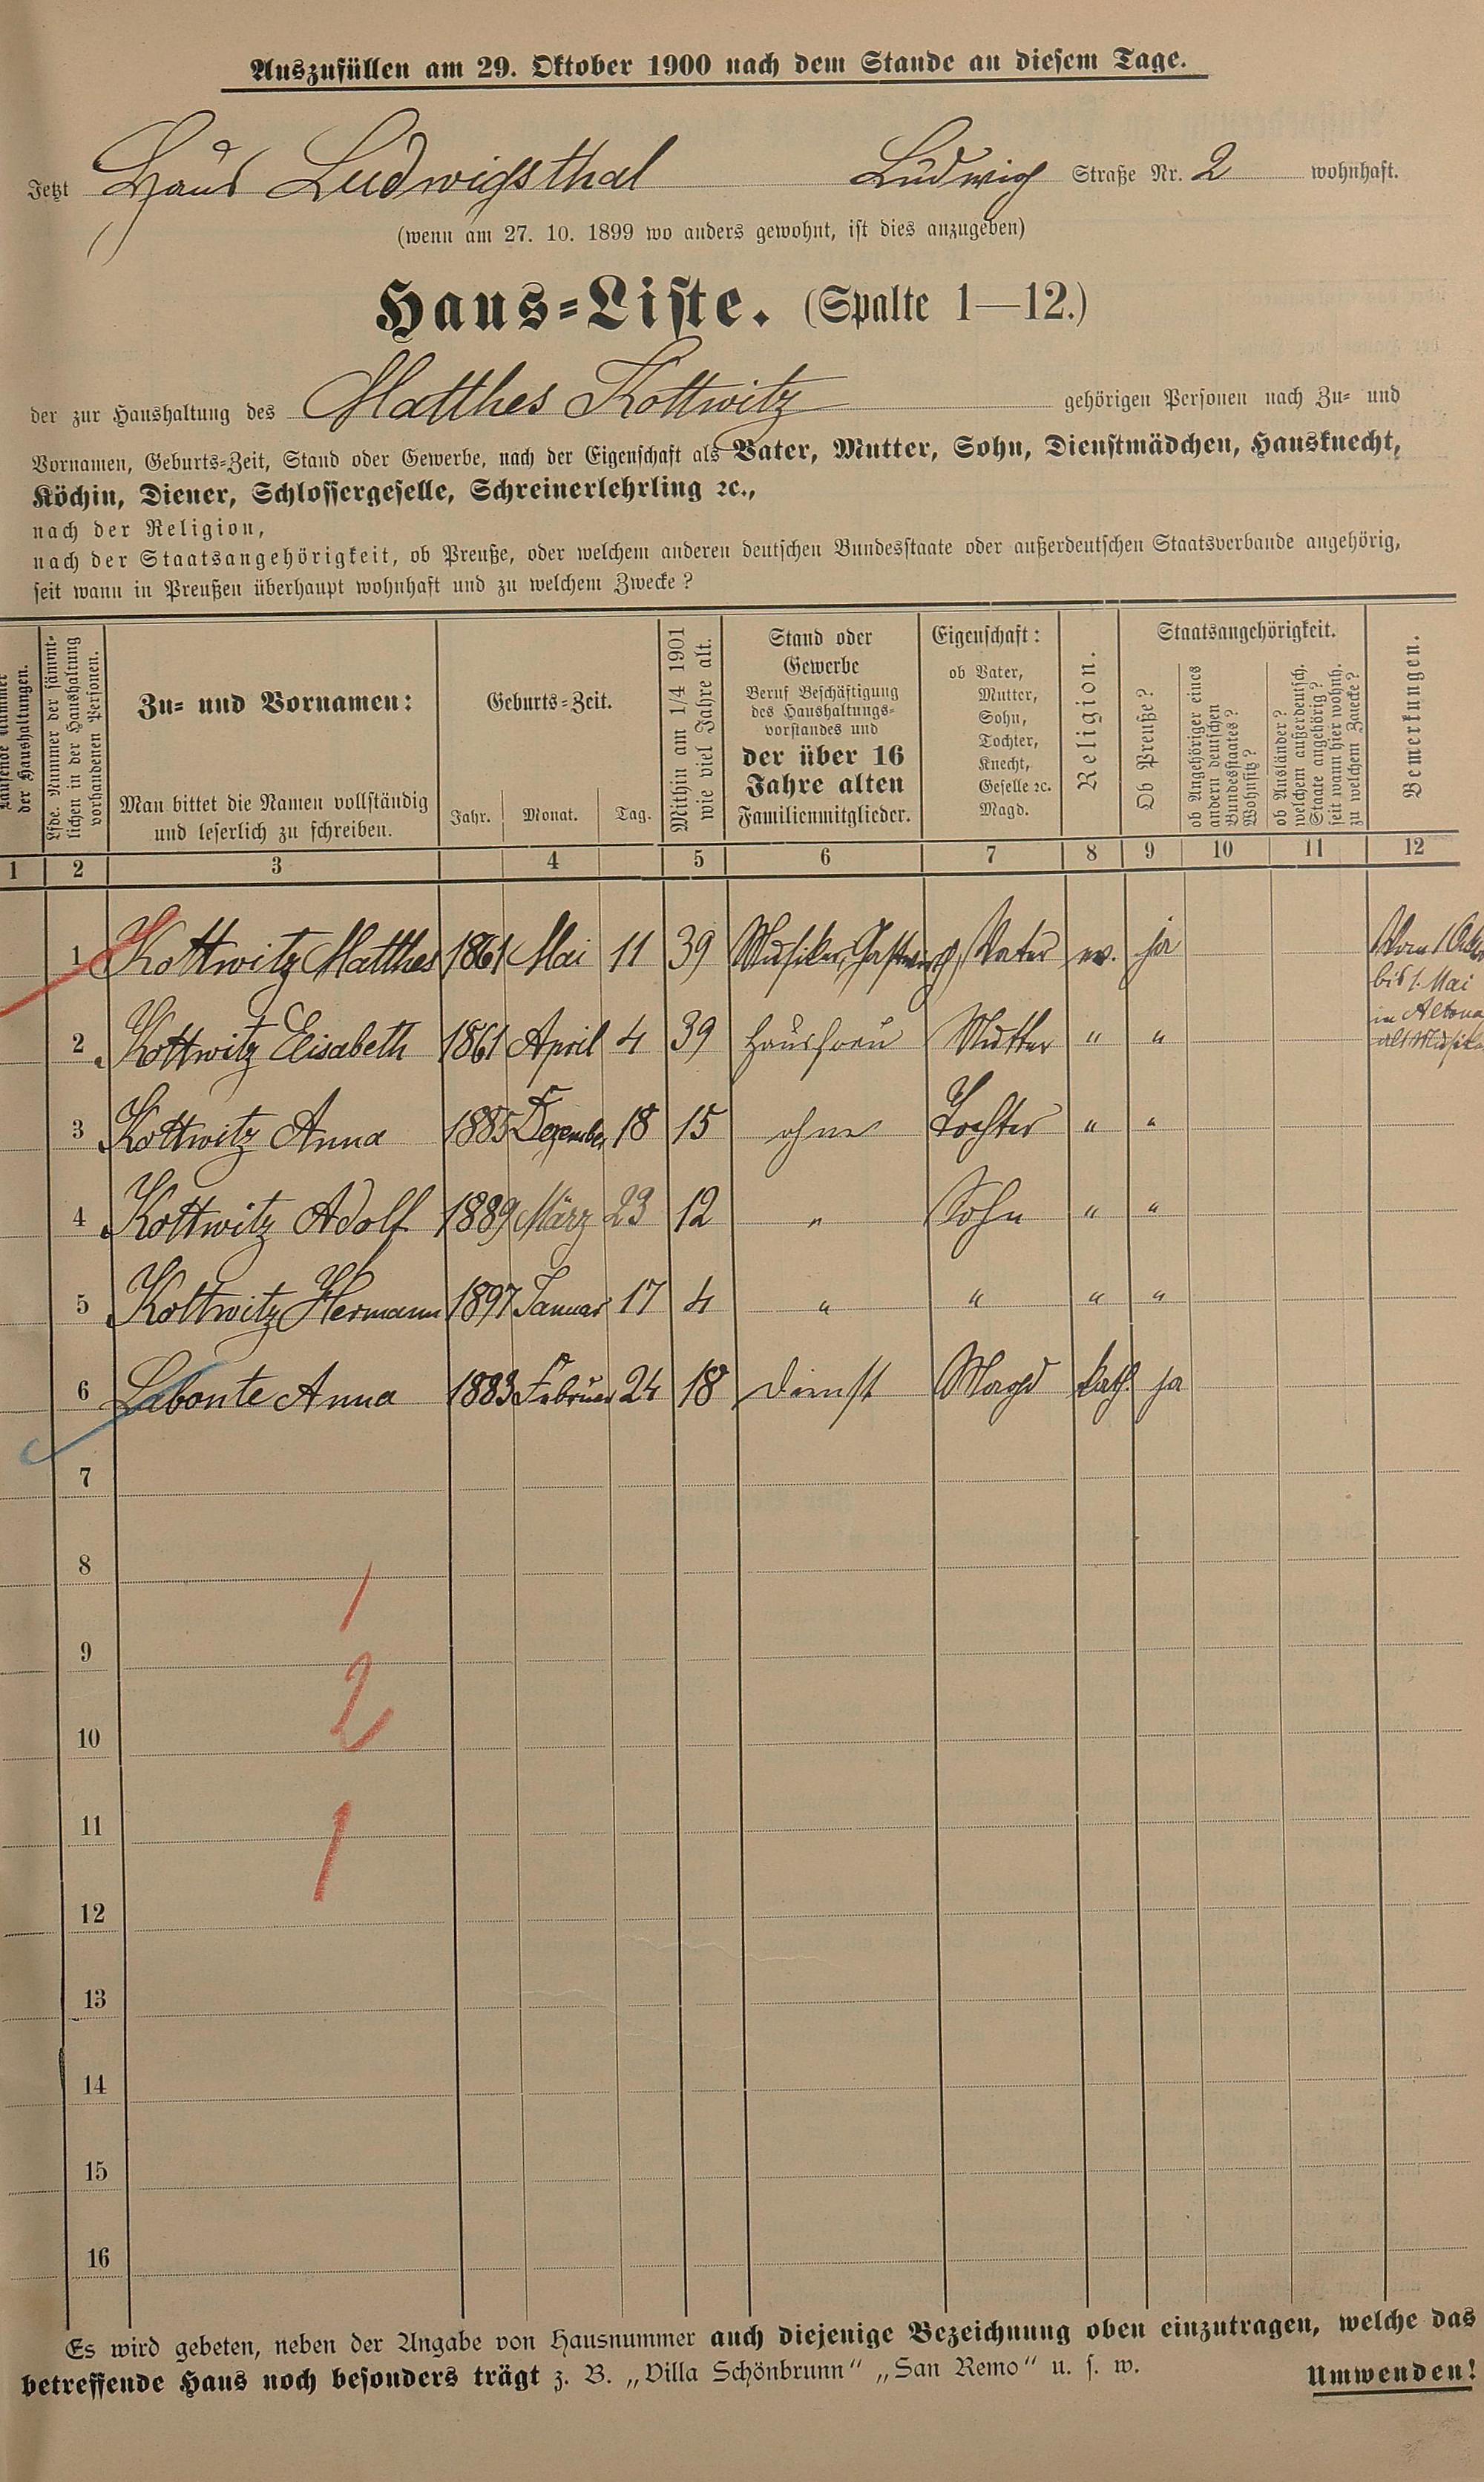 Auszufüllen am 29. Oktober 1900 nach dem Stande an diesem Tage.
Jetzt Haus Ludwigsthal Ludwig Straße Nr. 2 wohnhaft.
(wenn am 27. 10. 1899 wo anders gewohnt, ist dies anzugeben)
Haus-Liste. (Spalte 1—12.)
der zur Haushaltung des Matthes Kottwitz gehörigen Personen nach Zu- und
Vornamen, Geburts-Zeit, Stand oder Gewerbe, nach der Eigenschaft als Vater, Mutter, Sohn, Dienstmädchen, Hausknecht,
Köchin, Diener, Schlossergeselle, Schreinerlehrling ꝛc.,
nach der Religion,
nach der Staatsangehörigkeit, ob Preuße, oder welchem anderen deutschen Bundesstaate oder außerdeutschen Staatsverbande angehörig,
seit wann in Preußen überhaupt wohnhaft und zu welchem Zwecke?
Laufende Nummer
der Haushaltungen.
Lfde. Nummer der sämmt-
lichen in der Haushaltung
vorhandenen Personen.
Zu- und Vornamen:
Man bittet die Namen vollständig
und leserlich zu schreiben.
Geburts-Zeit.
Jahr. Monat. Tag.
Mithin am 1/4 1901
wie viel Jahre alt.
Stand oder
Gewerbe
Beruf Beschäftigung
des Haushaltungs-
vorstandes und
der über 16
Jahre alten
Familienmitglieder.
Eigenschaft:
ob Vater,
Mutter,
Sohn,
Tochter,
Knecht,
Geselle ꝛc.
Magd.
Religion.
Staatsangehörigkeit.
Ob Preuße?
ob Angehöriger eines
andern deutschen
Bundesstaates?
Wohnsitz?
ob Ausländer?
welchem außerdeutsch.
Staate angehörig?
seit wann hier wohnh.
zu welchem Zwecke?
Bemerkungen.
1 2 3 4 5 6 7 8 9 10 11 12
1 Kottwitz Matthes 1861 Mai 11 39 Musiker, Gastwirth Vater ev. ja Vom 1
bis 1. Mai
in Altona
als Musiker
2 Kottwitz Elisabeth 1861 April 4 39 Hausfrau Mutter " "
3 Kottwitz Anna 1885 Dezember 18 15 ohne Tochter " "
4 Kottwitz Adolf 1889 März 23 12 " Sohn " "
5 Kottwitz Hermann 1897 Januar 17 4 " " " "
6 Labonte Anna 1883 Februar 24 18 Dienst Magd kath. ja
7
8
1
9
2
10
11
1
12
13
14
15
16
Es wird gebeten, neben der Angabe von Hausnummer auch diejenige Bezeichnung oben einzutragen, welche das
betreffende Haus noch besonders trägt z. B. „Villa Schönbrunn“ „San Remo“ u. s. w.
Umwenden!